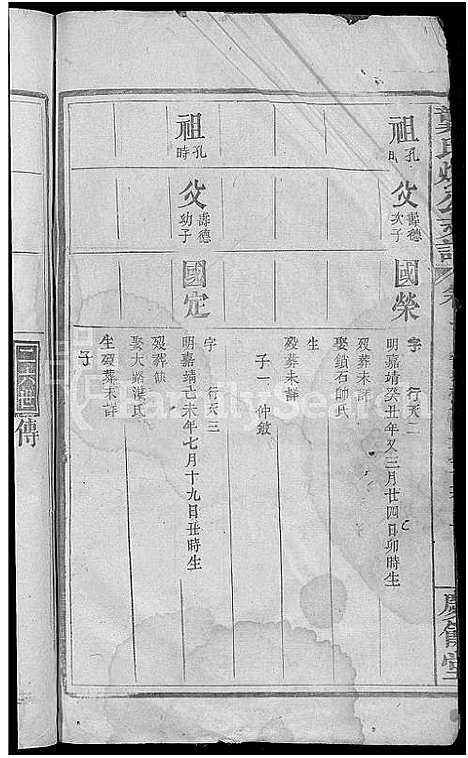 祖 孔時
父 壽德次子
國榮
字 行天二
明嘉靖癸丑年又三月廿四日卯時生
歿葬未詳
娶鎖石師氏
生
歿葬未詳
子一 仲斂
祖 孔時
父 壽德幼子
國定
字 行天三
明嘉靖己未年七月十九日丑時生
歿葬缺
娶大路漢氏
生歿葬未詳
子
慶會堂
傳
FamilySearch